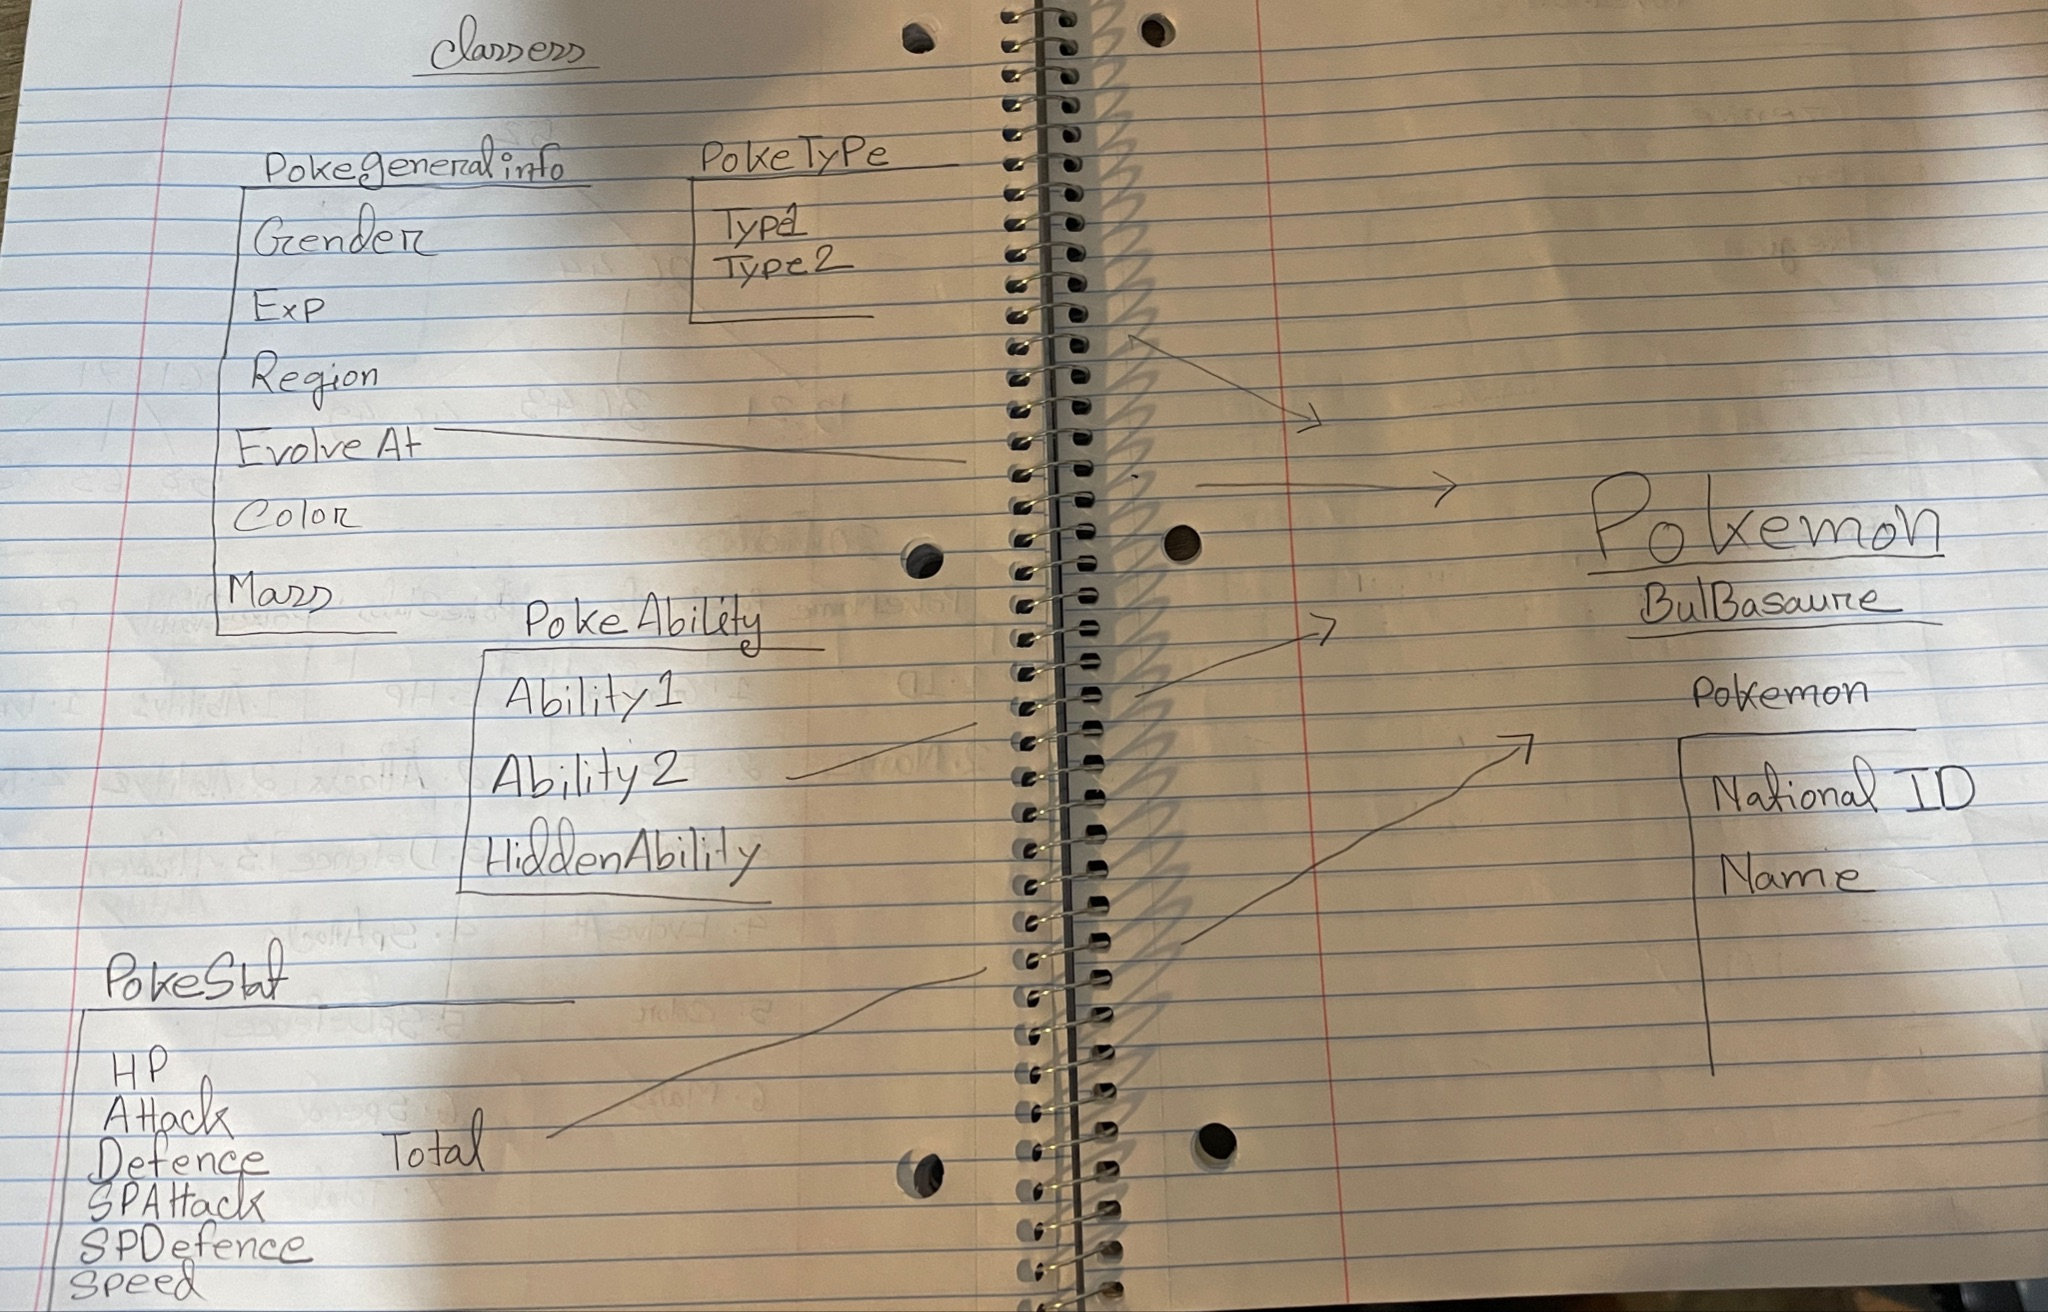 Classess
Pokegeneralinfo
Gender
Exp
Region
Evolve At
Color
Mass
PokeType
Type1
Type2
PokeAbility
Ability1
Ability2
HiddenAbility
PokeStat
HP
Attack
Defence
SPAttack
SPDefence
Speed
Total
Pokemon
BulBasaure
Pokemon
National ID
Name